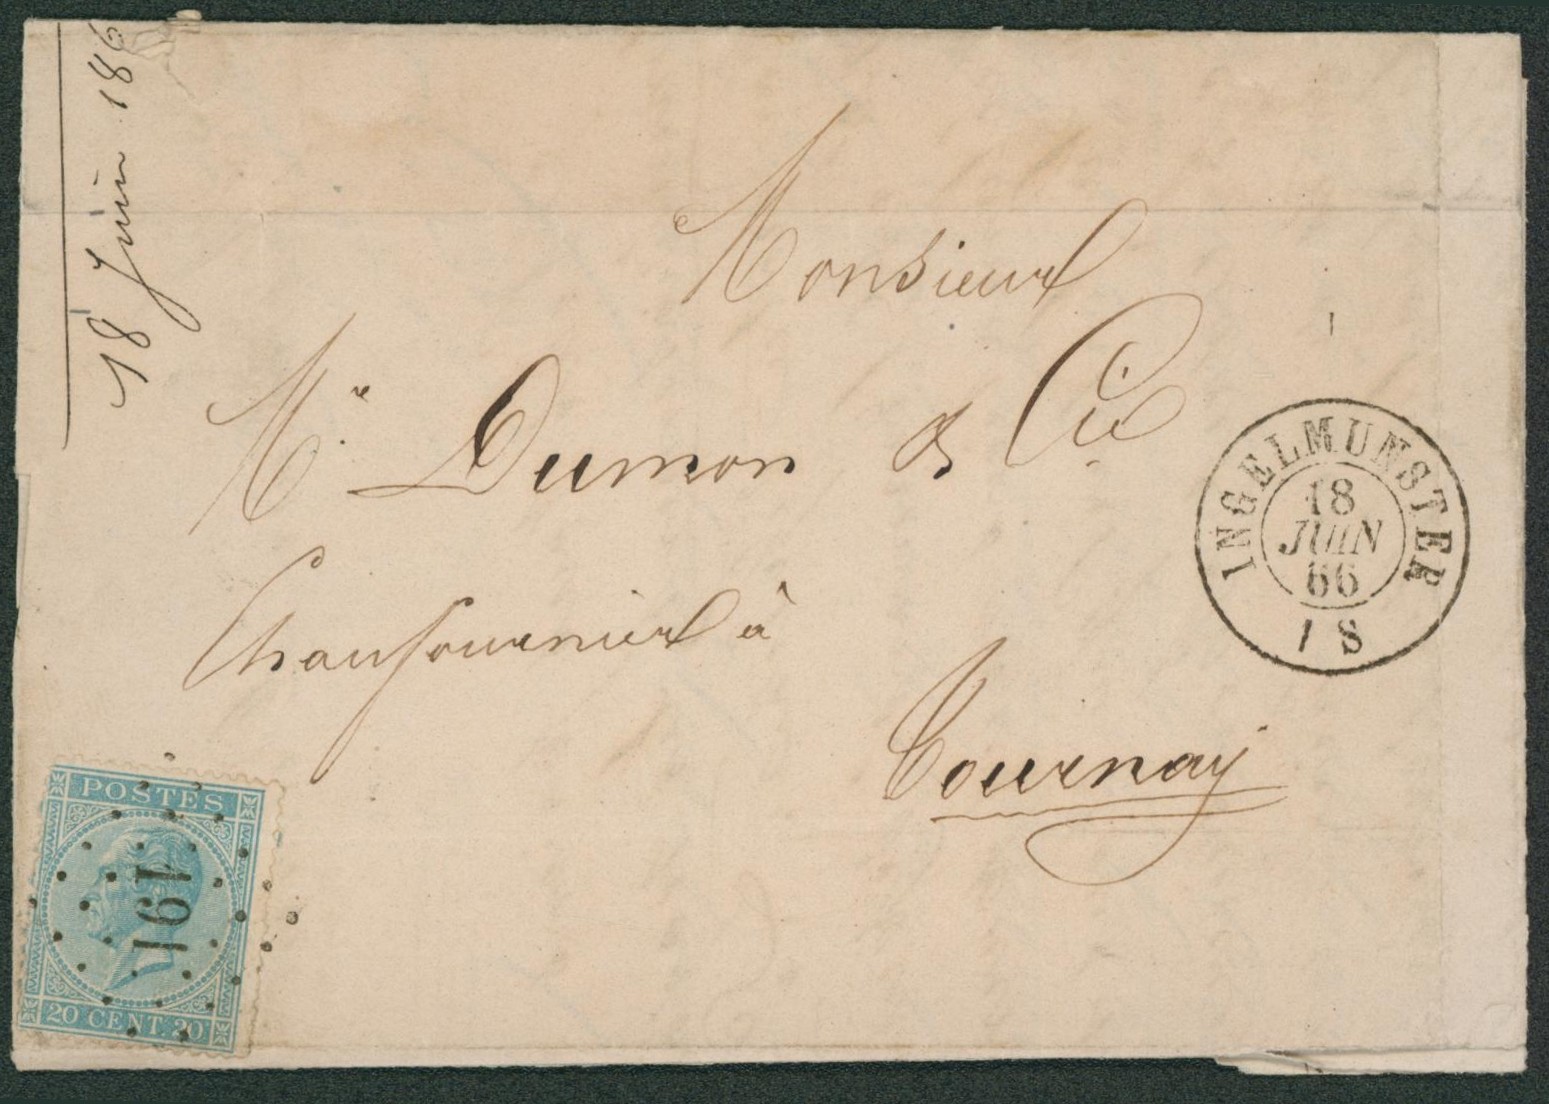 18 Juin 186
Monsieur
Mr Dumon & Cie
Chaufournier à
Tournay
INGELMUNSTER
18
JUIN
66
1 S
POSTES
191
20 CENT. 20